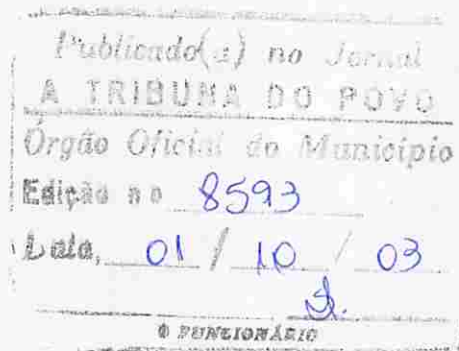 Publicado(a) no Jornal
A TRIBUNA DO POVO
Órgão Oficial do Município
Edição no 8593
Data, 01 / 10 / 03
O FUNCIONÁRIO